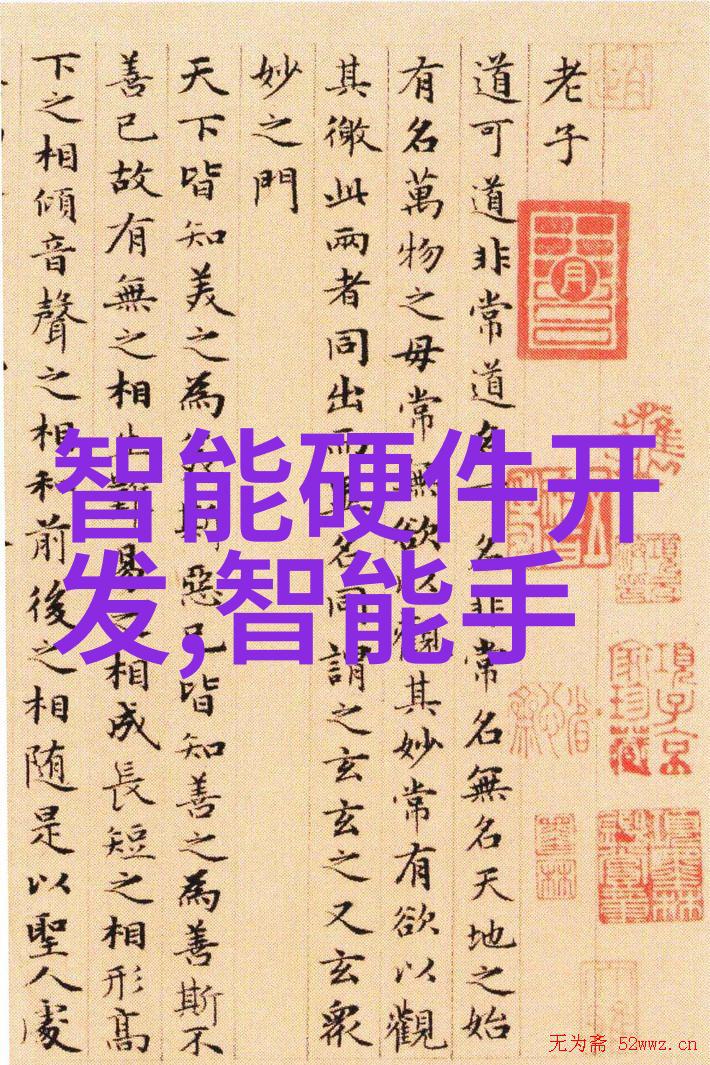 老子
道可道非常道名非常名無名天地之始
有名萬物之母常無欲以觀其妙常有欲以觀
其徼此兩者同出而異名同謂之玄玄之又玄衆
妙之門
天下皆知美之為美斯惡已皆知善之為善斯不
善已故有無之相生難易之相成長短之相形高
下之相傾音聲之相和前後之相随是以聖人處
智能硬件开
发,智能手
項子京
家珍藏
无为斋 52wwz.cn